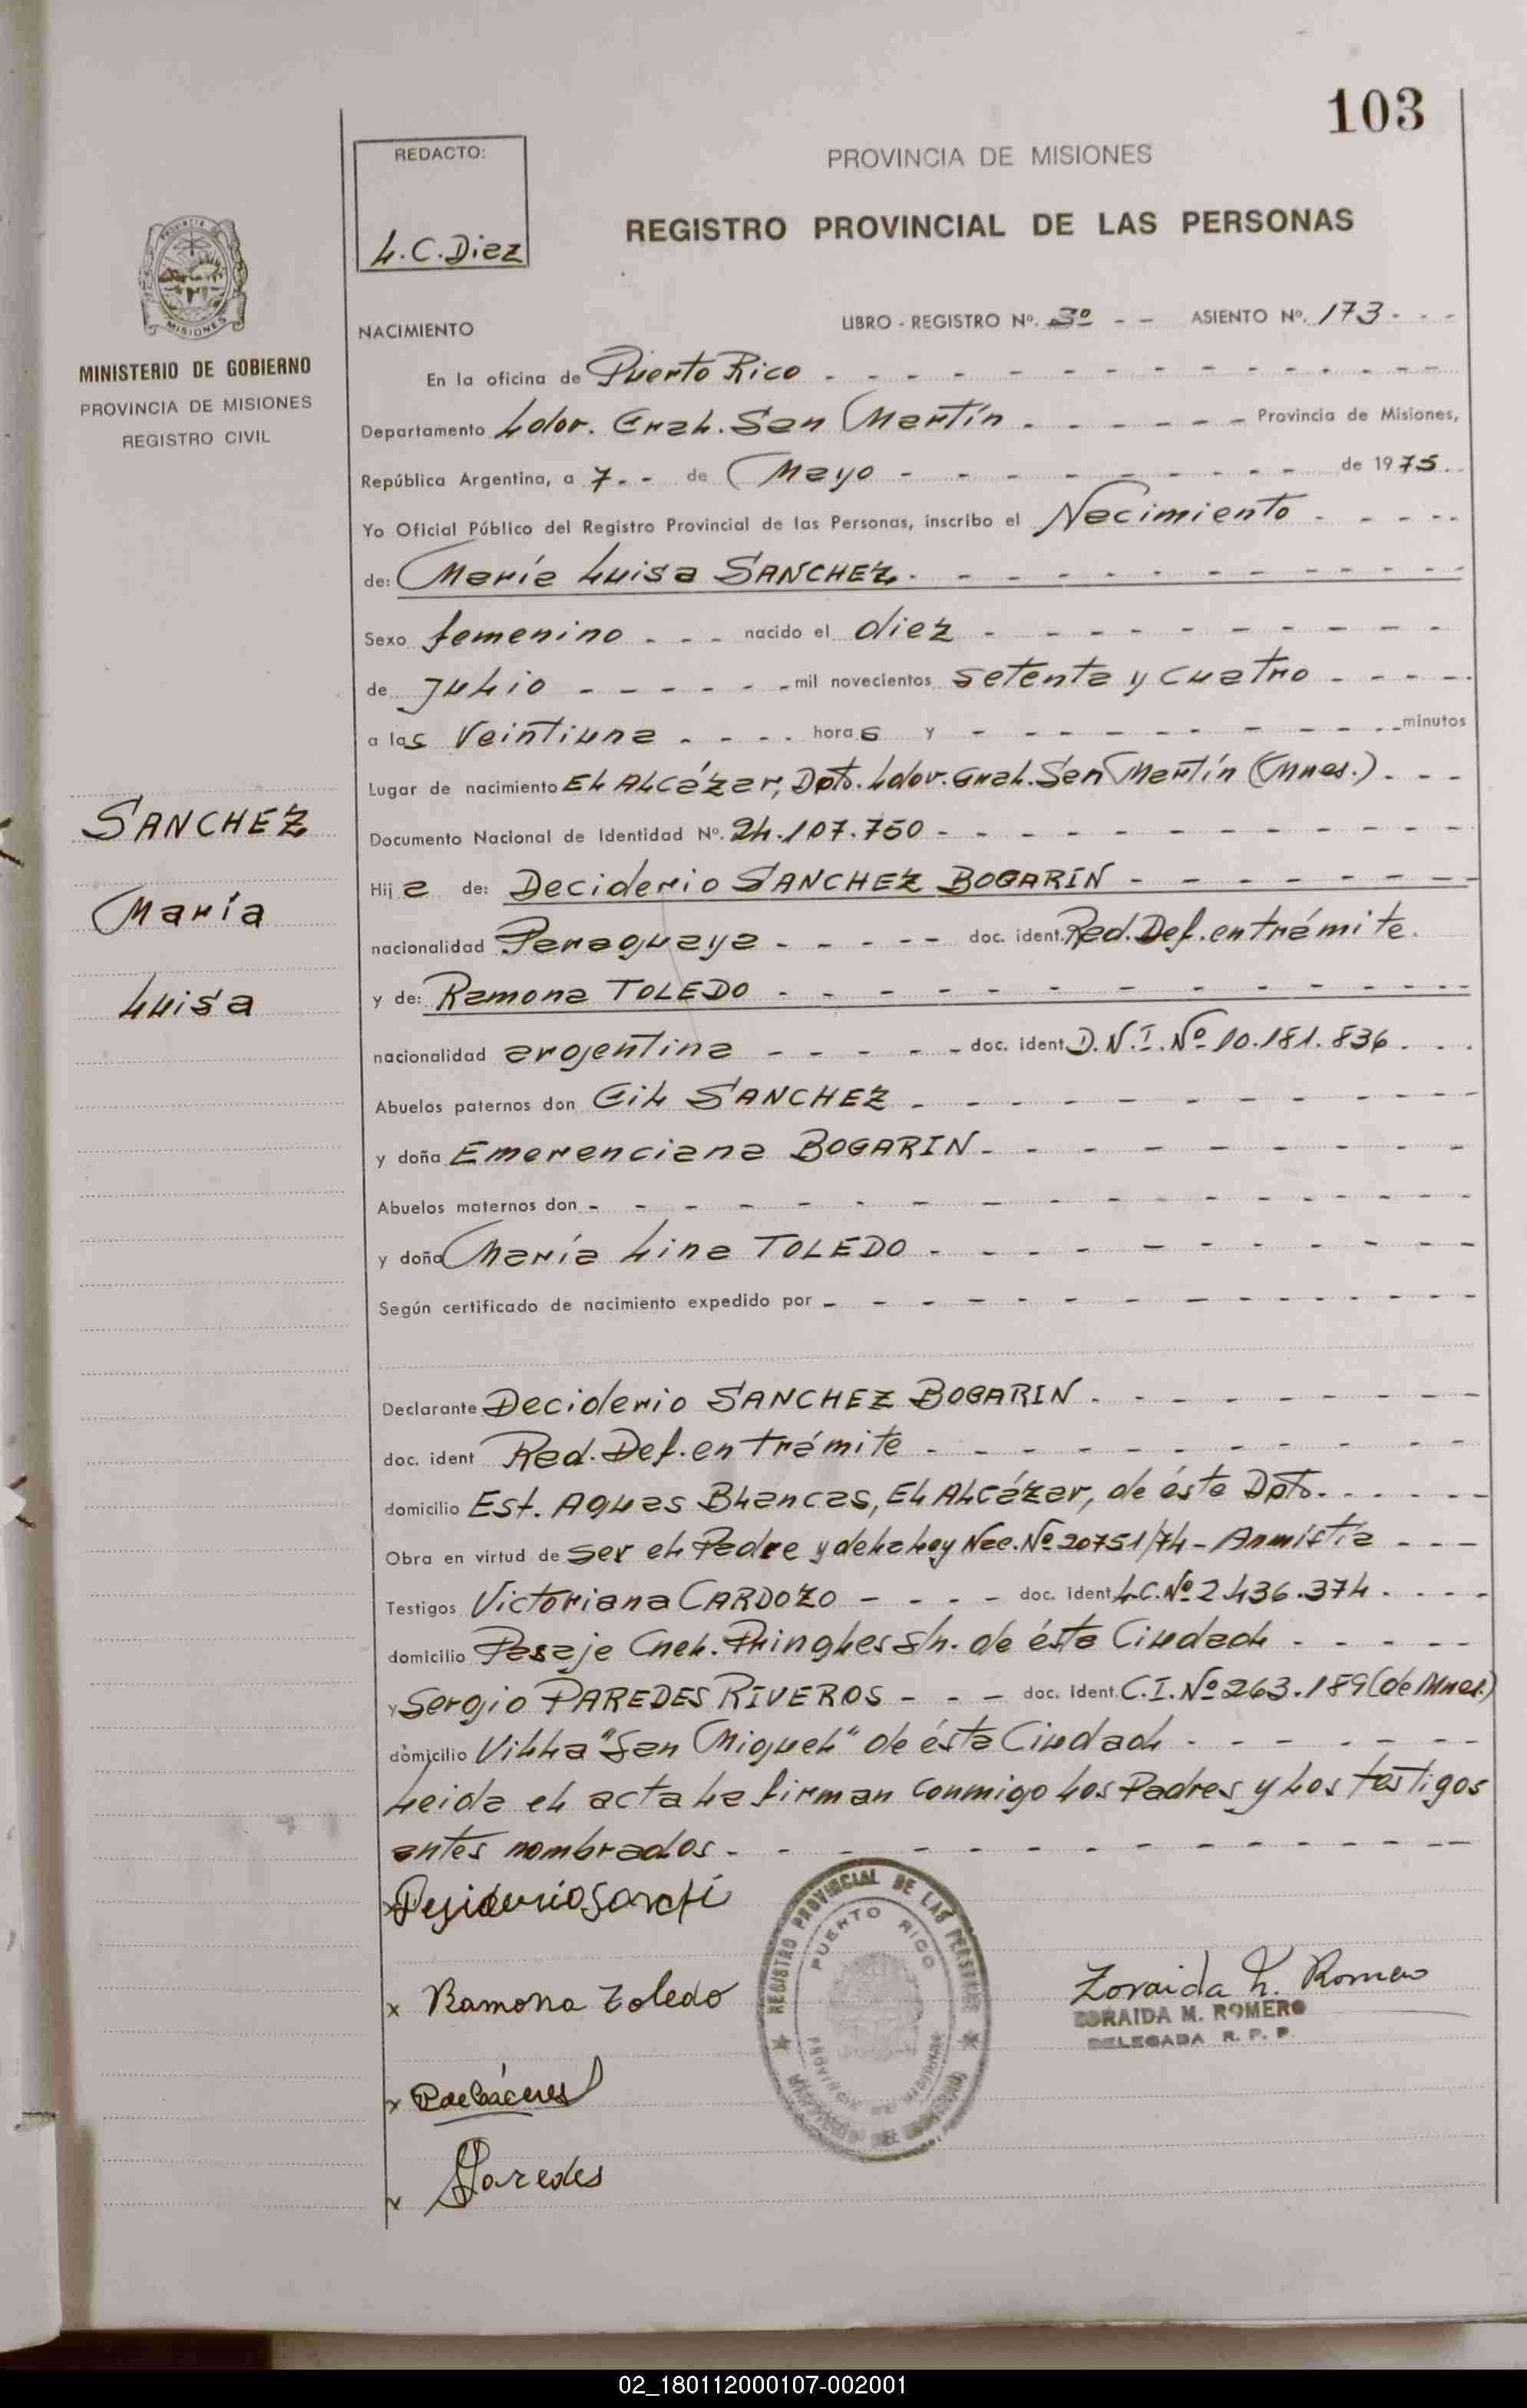 103
REDACTO:
L.C.Diez
PROVINCIA DE MISIONES
REGISTRO PROVINCIAL DE LAS PERSONAS
MINISTERIO DE GOBIERNO
PROVINCIA DE MISIONES
REGISTRO CIVIL
NACIMIENTO
LIBRO - REGISTRO Nº. 3º - - ASIENTO Nº. 173 - - -
En la oficina de Puerto Rico
Departamento Ldor. Gral. San Martín Provincia de Misiones,
República Argentina, a 7 - - de Mayo de 1975
Yo Oficial Público del Registro Provincial de las Personas, inscribo el Nacimiento
de: María Luisa SANCHEZ
Sexo femenino - - - nacido el diez
de julio mil novecientos setenta y cuatro
a las veintiuna horas y minutos
Lugar de nacimiento EL ALCázar, Dpto. Ldor. Gral. San Martín (Mnes.)
Documento Nacional de Identidad Nº. 24.107.750
Hija de: Deciderio SANCHEZ BOGARIN
nacionalidad Paraguaya doc. ident. Rad. Def. en trámite.
y de: Ramona TOLEDO
nacionalidad argentina doc. ident D.N.I. Nº 10.181.836
Abuelos paternos don Gil SANCHEZ
y doña Emerenciana BOGARIN
Abuelos maternos don
y doña María Lina TOLEDO
Según certificado de nacimiento expedido por
Declarante Deciderio SANCHEZ BOGARIN
doc. ident Rad. Def. en trámite
domicilio Est. Aguas Blancas, EL ALCázar, de éste Dpto.
Obra en virtud de ser el Padre y de la ley Nac. Nº 20751/74 - Anmistía
Testigos Victoriana CARDOZO doc. ident L.C. Nº 2.436.374
domicilio Pasaje Cnel. Pringles s/n. de ésta Ciudad
y Sergio PAREDES RIVEROS doc. ident. C.I. Nº 263.189 (de Mnes.)
domicilio Villa "San Miguel" de ésta Ciudad
Leida el acta la firman conmigo los Padres y los testigos
antes nombrados.
SANCHEZ
María
Luisa
x Ramona Toledo
x Paredes
REGISTRO PROVINCIAL DE LAS PERSONAS
PUERTO RICO
PROVINCIA DE MISIONES
Zoraida M. Romero
ZORAIDA M. ROMERO
DELEGADA R. P. P.
02_180112000107-002001